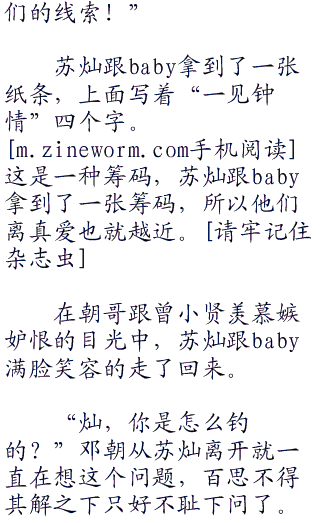 们的线索！”
苏灿跟baby拿到了一张
纸条，上面写着“一见钟
情”四个字。
[m.zineworm.com手机阅读]
这是一种筹码，苏灿跟baby
拿到了一张筹码，所以他们
离真爱也就越近。[请牢记住
杂志虫]
在朝哥跟曾小贤羡慕嫉
妒恨的目光中，苏灿跟baby
满脸笑容的走了回来。
“灿，你是怎么钓
的？”邓朝从苏灿离开就一
直在想这个问题，百思不得
其解之下只好不耻下问了。